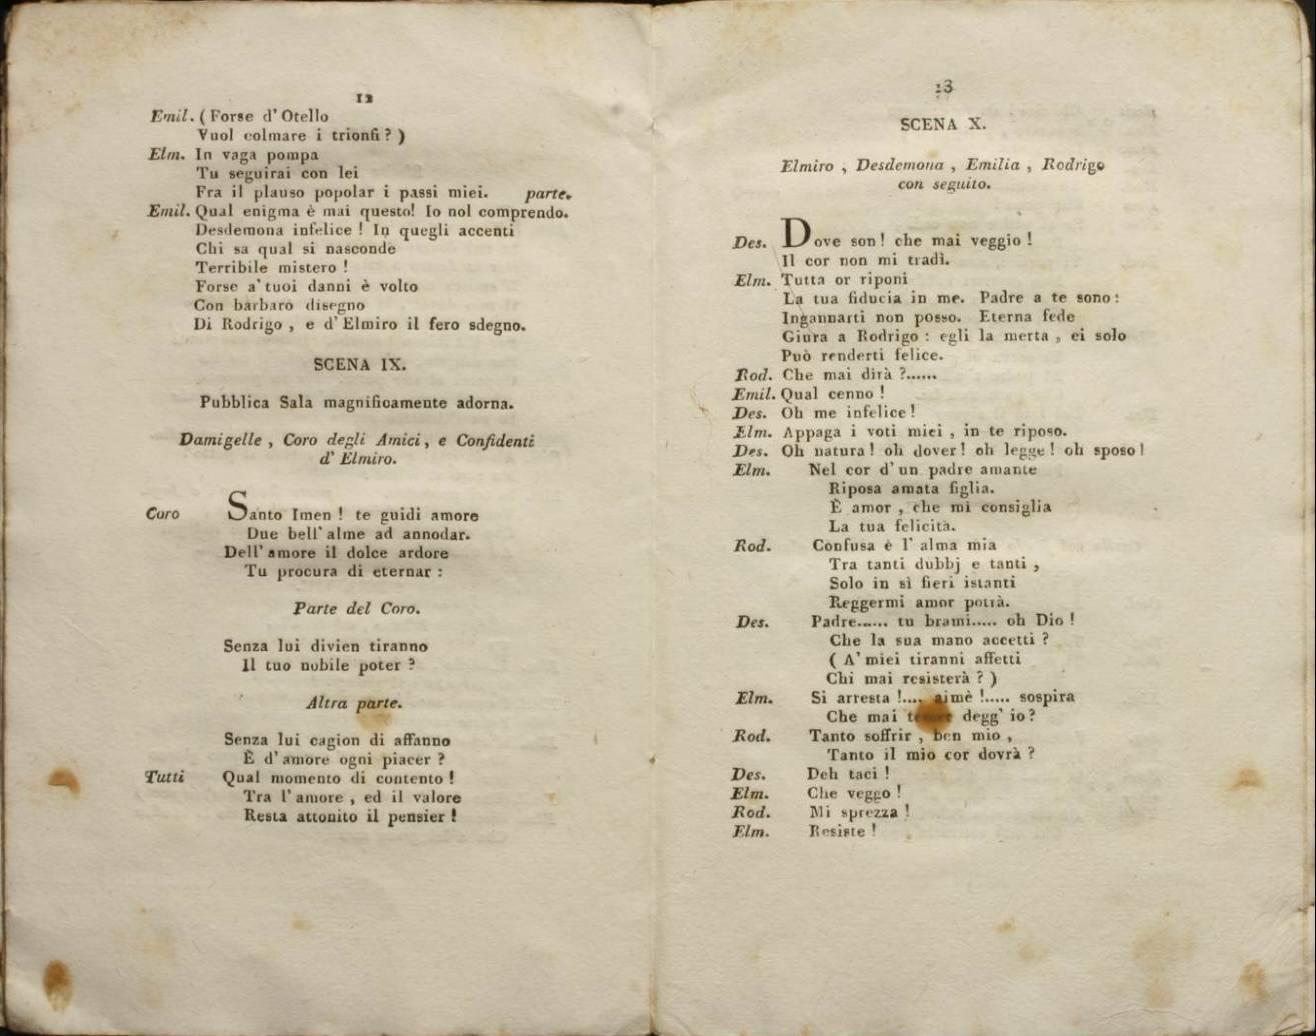 12
Emil. ( Forse d' Otello
Vuol colmare i trionfi ? )
Elm. In vaga pompa
Tu seguirai con lei
Fra il plauso popolar i passi miei. parte.
Emil. Qual enigma è mai questo! Io nol comprendo.
Desdemona infelice ! In quegli accenti
Chi sa qual si nasconde
Terribile mistero !
Forse a' tuoi danni è volto
Con barbaro disegno
Di Rodrigo , e d' Elmiro il fero sdegno.
SCENA IX.
Pubblica Sala magnificamente adorna.
Damigelle , Coro degli Amici , e Confidenti
d' Elmiro.
Coro Santo Imen ! te guidi amore
Due bell' alme ad annodar.
Dell' amore il dolce ardore
Tu procura di eternar :
Parte del Coro.
Senza lui divien tiranno
Il tuo nobile poter ?
Altra parte.
Senza lui cagion di affanno
È d' amore ogni piacer ?
Tutti Qual momento di contento !
Tra l' amore , ed il valore
Resta attonito il pensier !
13
SCENA X.
Elmiro , Desdemona , Emilia , Rodrigo
con seguito.
Des. Dove son ! che mai veggio !
Il cor non mi tradì.
Elm. Tutta or riponi
La tua fiducia in me. Padre a te sono :
Ingannarti non posso. Eterna fede
Giura a Rodrigo : egli la merta , ei solo
Può renderti felice.
Rod. Che mai dirà ?......
Emil. Qual cenno !
Des. Oh me infelice !
Elm. Appaga i voti miei , in te riposo.
Des. Oh natura ! oh dover ! oh legge ! oh sposo !
Elm. Nel cor d' un padre amante
Riposa amata figlia.
È amor , che mi consiglia
La tua felicità.
Rod. Confusa è l' alma mia
Tra tanti dubbj e tanti ,
Solo in sì fieri istanti
Reggermi amor potrà.
Des. Padre...... tu brami..... oh Dio !
Che la sua mano accetti ?
( A' miei tiranni affetti
Chi mai resisterà ? )
Elm. Si arresta !.... aimè !..... sospira
Che mai degg' io ?
Rod. Tanto soffrir , ben mio ,
Tanto il mio cor dovrà ?
Des. Deh taci !
Elm. Che veggo !
Rod. Mi sprezza !
Elm. Resiste !